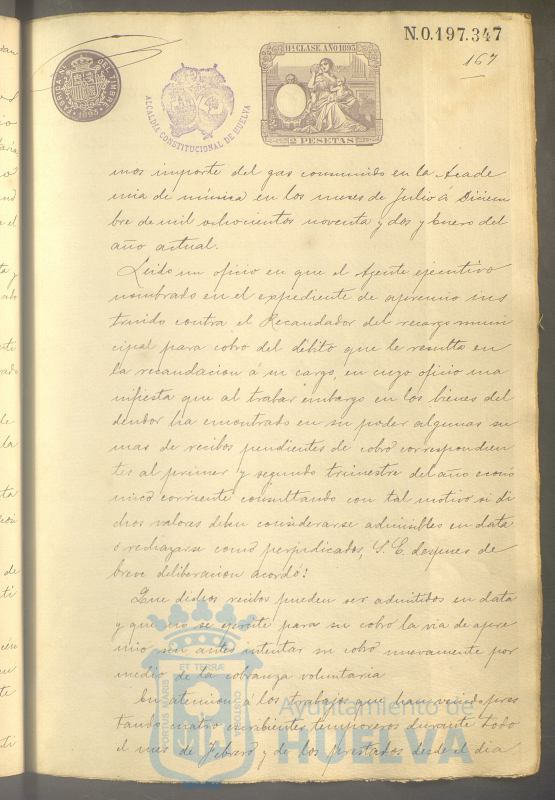 N.0.197.347
167
11ª CLASE AÑO 1893
2 PESETAS
ALCALDÍA CONSTITUCIONAL DE HUELVA
1893
mos importe del gas consumido en la Acade
mia de música en los meses de Julio á Diciem
bre de mil ochocientos noventa y dos y Enero del
año actual.
Leido un oficio en que el Agente ejecutivo
nombrado en el expediente de apremio ins
truido contra el Recaudador del recargo muni
cipal para cobro del débito que le resulta en
la recaudacion á su cargo, en cuyo oficio ma
nifiesta que al trabar embargo en los bienes del
deudor ha encontrado en su poder algunas su
mas de recibos pendientes de cobro correspondien
tes al primer y segundo trimestre del año econó
mico corriente consultando con tal motivo si di
chos valores deben considerarse admisibles en data
ó rechazarse como perjudicados, S. E. despues de
breve deliberacion acordó:
Que dichos recibos pueden ser admitidos en data
y que no se ejercite para su cobro la via de apre
mio sin antes intentar su cobro nuevamente por
medio de la cobranza voluntaria
En atencion á los trabajos que han venido pres
tando cuatro escribientes temporeros durante todo
el mes de Febrero y de los prestados desde el dia
PORTUS MARIS ET TERRAE CUSTODIO
Ayuntamiento de
HUELVA